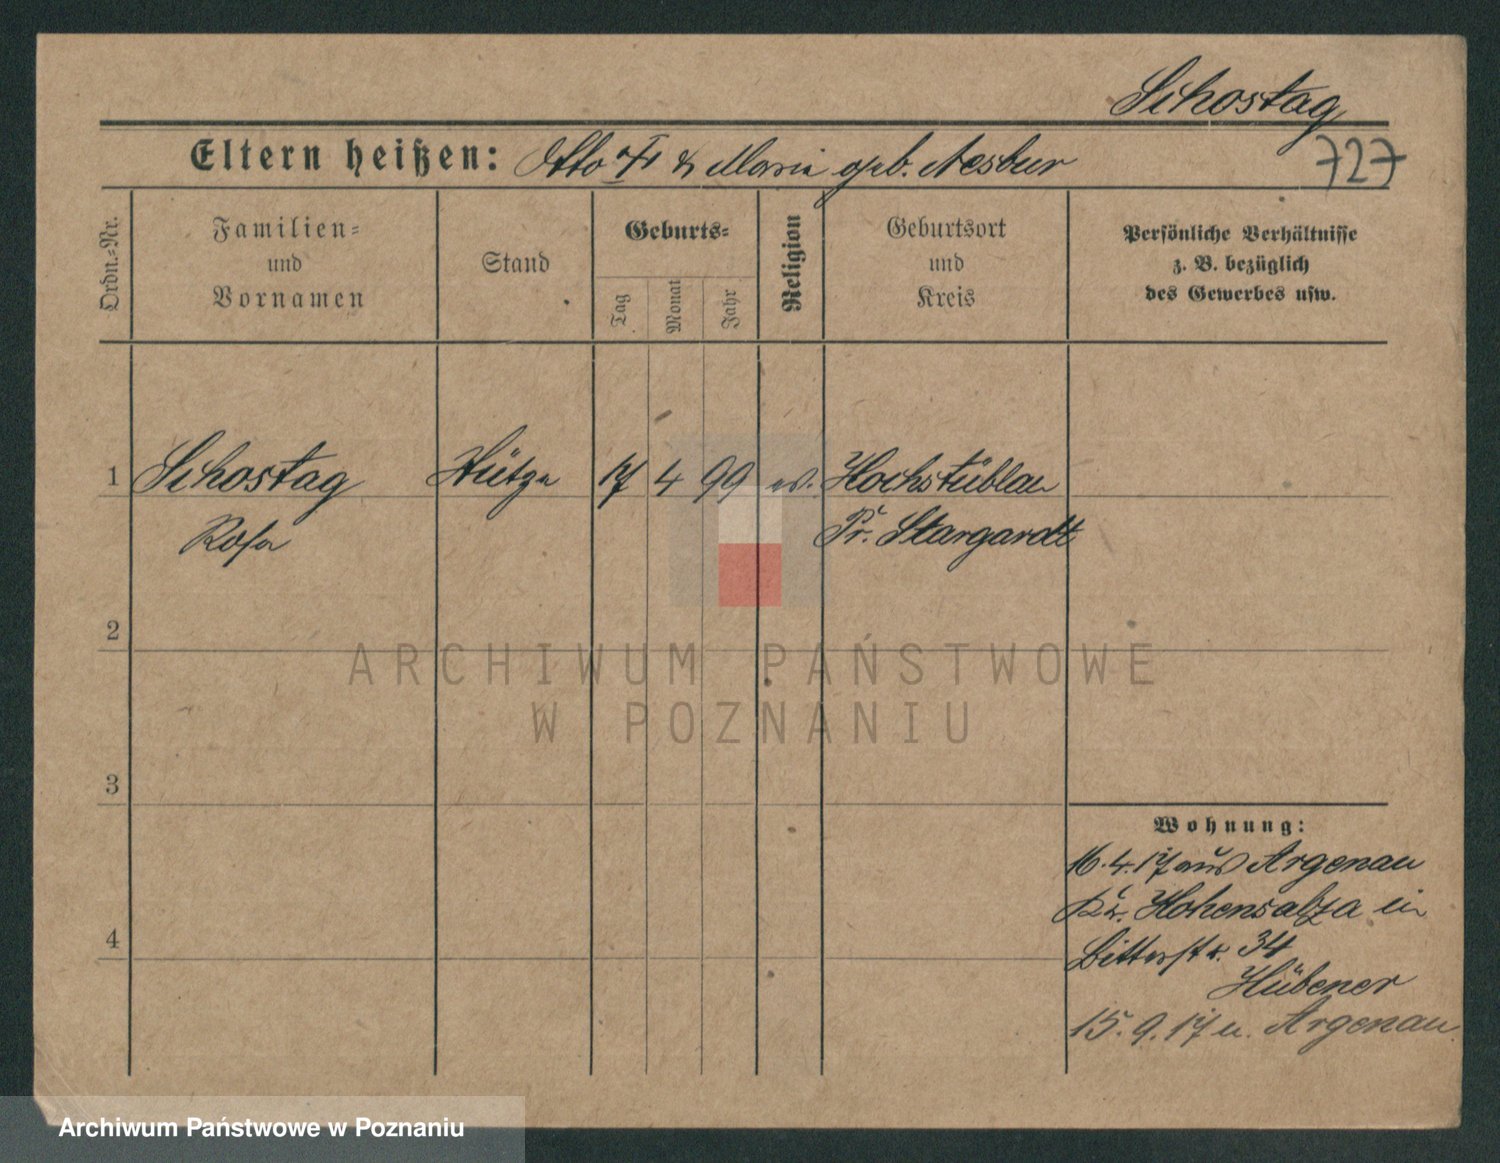 Schostag
Eltern heißen: Otto & Maria geb. Nesbur
727
Ordn.-Nr.
Familien=
und
Vornamen
Stand
Geburts=
Tag
Monat
Jahr
Religion
Geburtsort
und
Kreis
Persönliche Verhältnisse
z. B. bezüglich
des Gewerbes usw.
1 Schostag 17 4 99 ev. Hochstüblau
Rosa Pr. Stargardt
2
ARCHIWUM PAŃSTWOWE
W POZNANIU
3
Wohnung:
16.4.17 aus Argenau
Kr. Hohensalza in
Bitterstr. 34
4
Hübener
15.9.17 n. Argenau
Archiwum Państwowe w Poznaniu